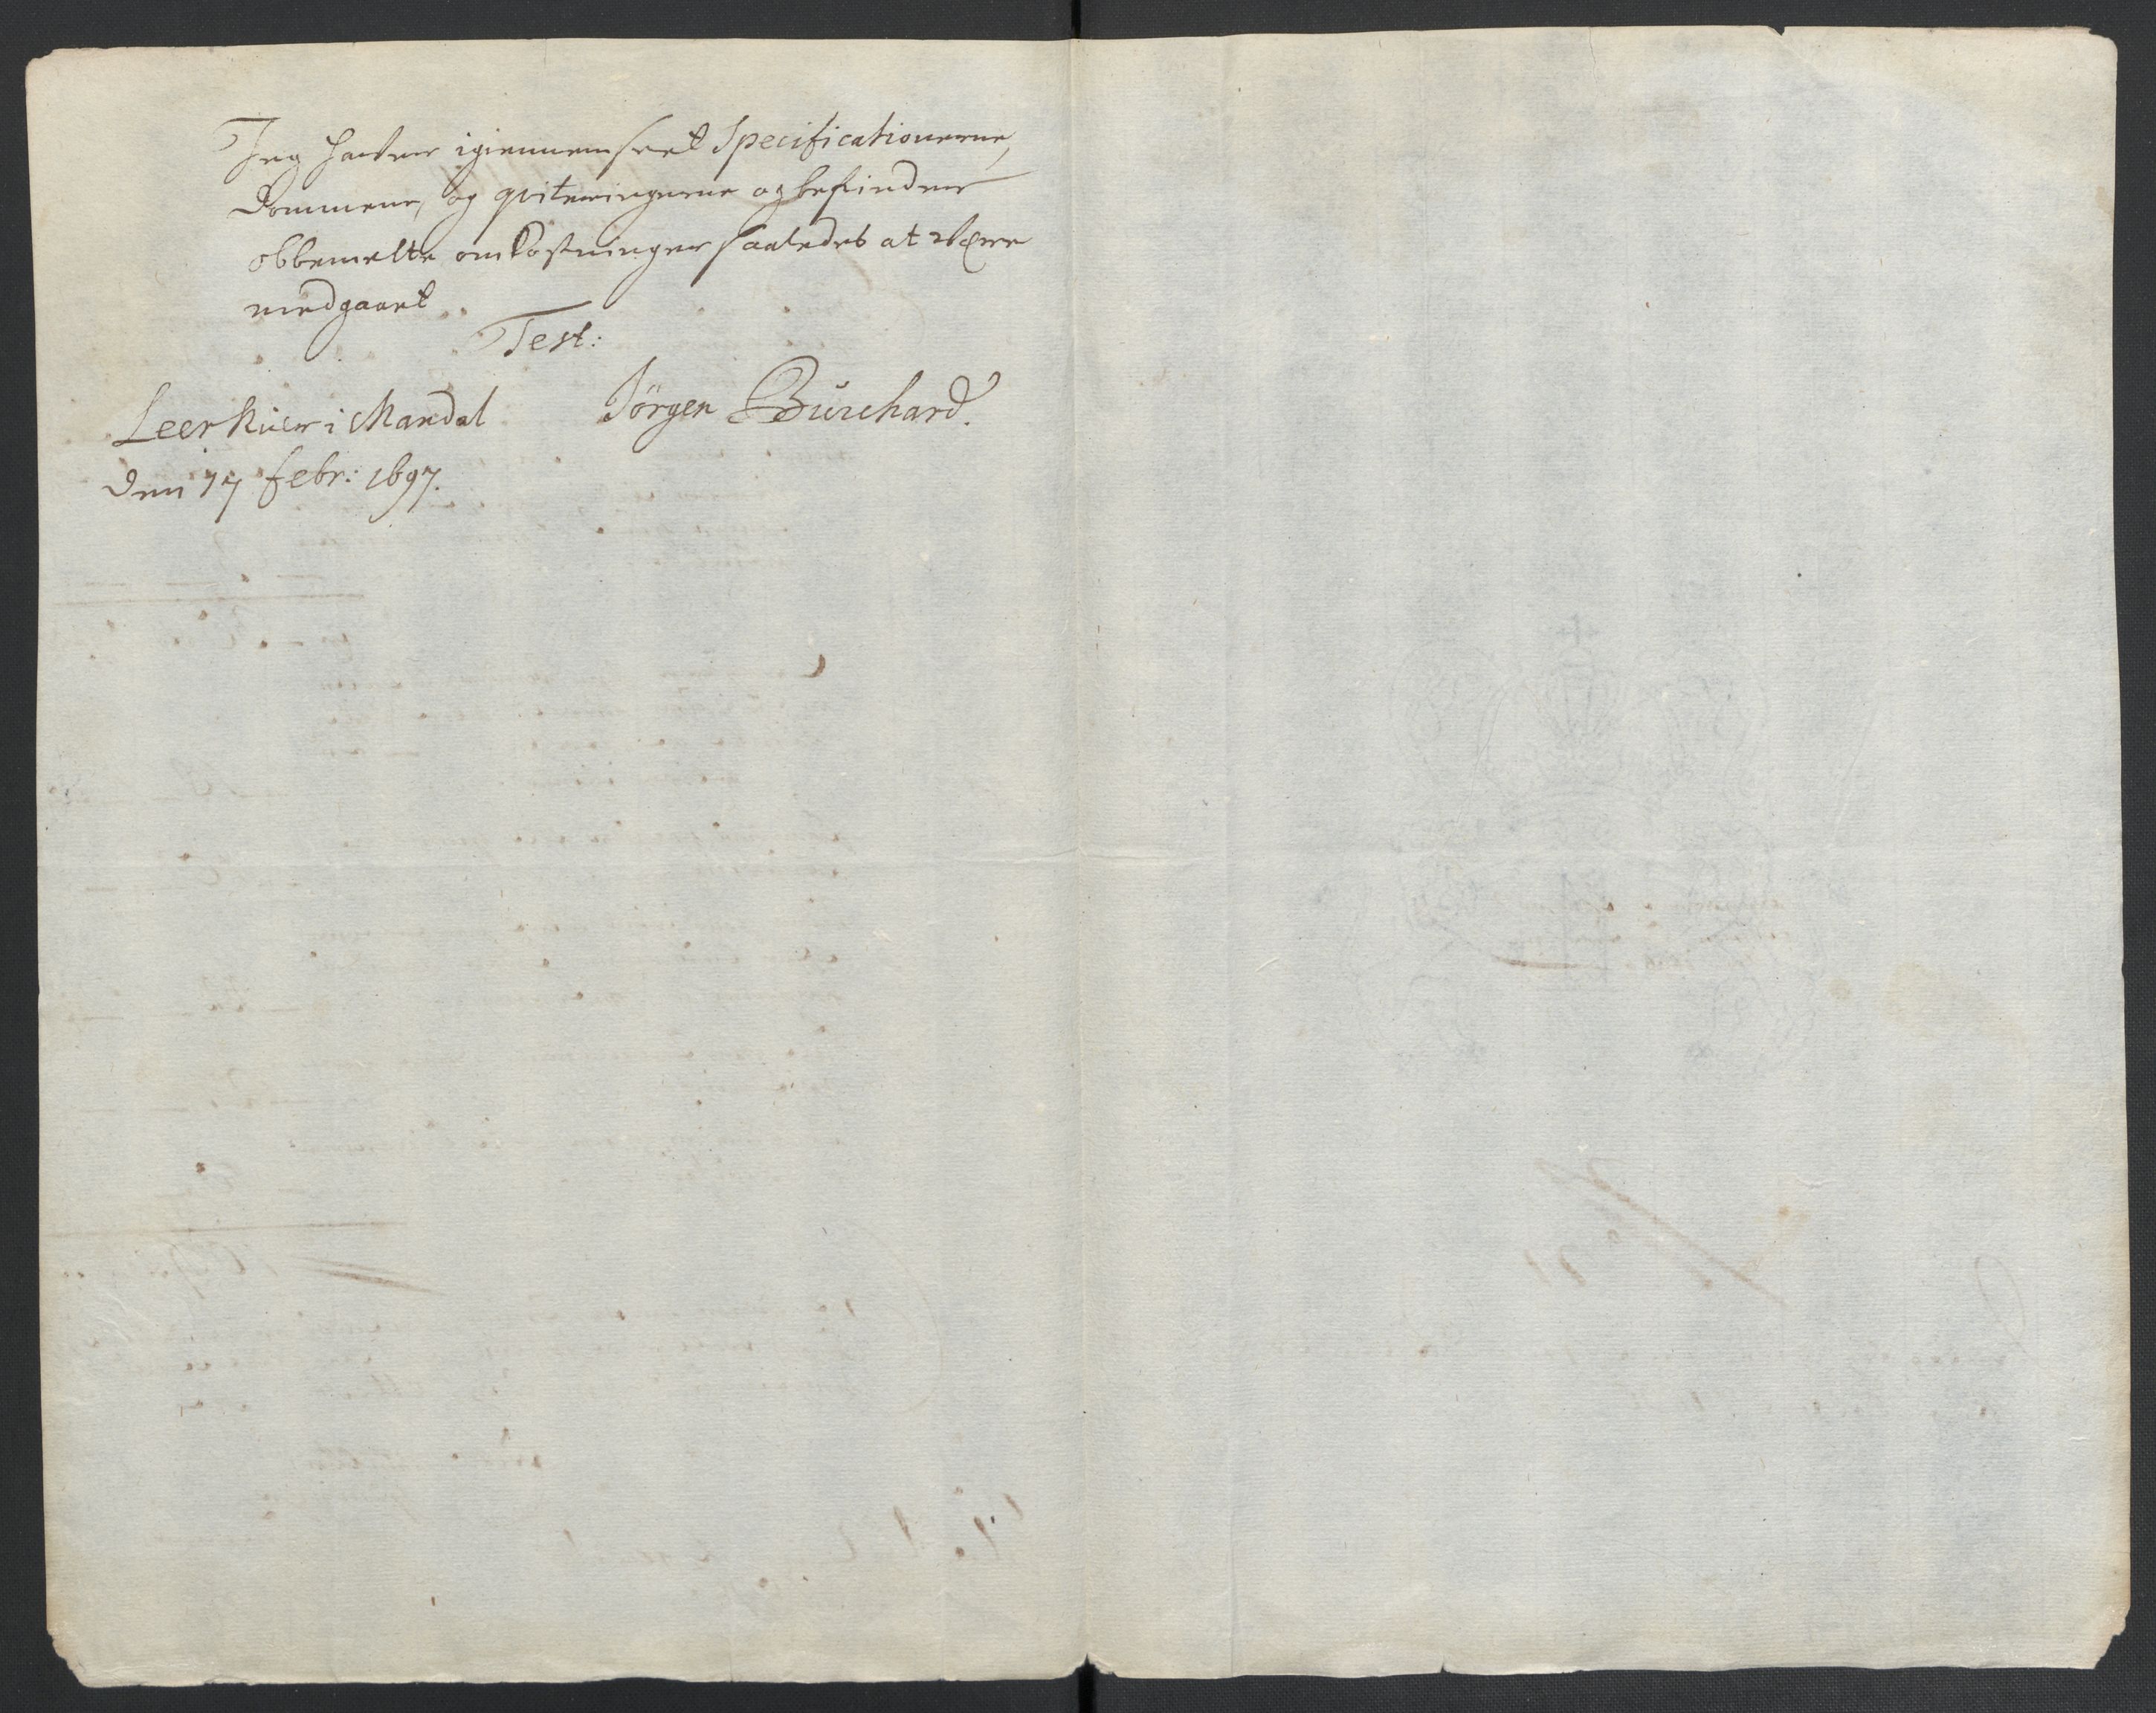 Jeg hafver igiennemseet Specificationerne,
Dommene, og qviteringerne og befinder
obbemelte omkostninger saaledes at være
medgaaet
Test:
Leerkiier i Mandal Jörgen Burchard.
den 17 febr: 1697.